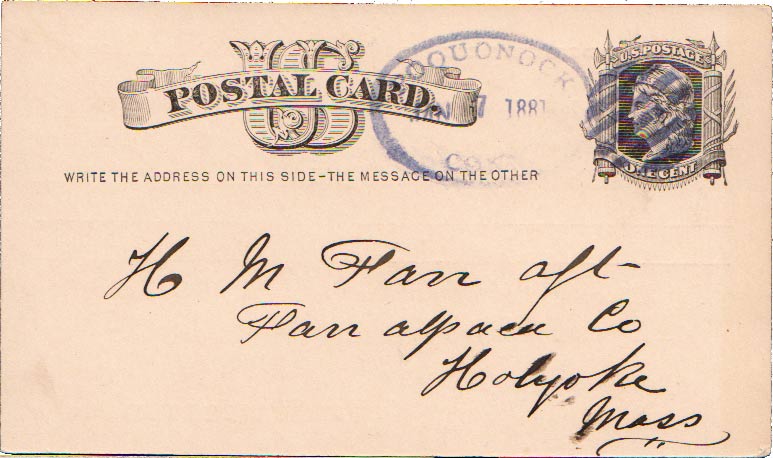 US
POSTAL CARD.
POQUONOCK
7 1881
U.S. POSTAGE
ONE CENT
WRITE THE ADDRESS ON THIS SIDE–THE MESSAGE ON THE OTHER
H M Farr agt
Farr alpaca Co
Holyoke
Mass